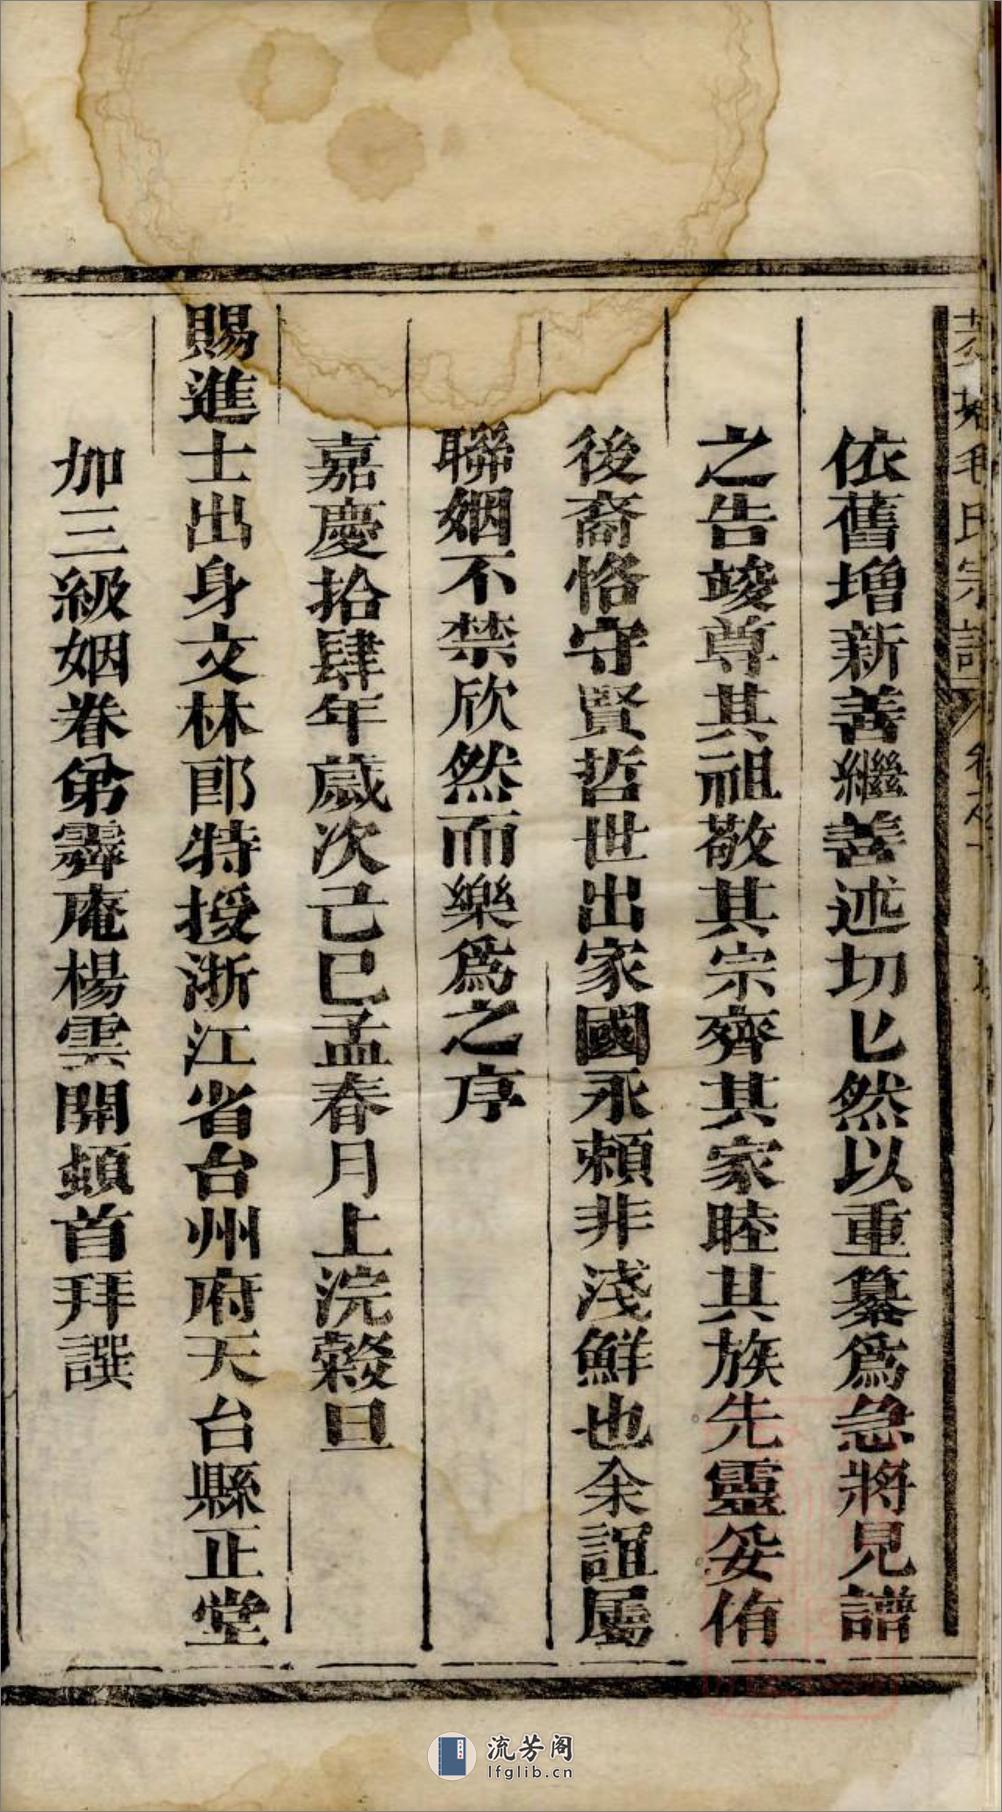 依舊增新善繼善述切切然以重纂爲急將見譜
之告竣尊其祖敬其宗齊其家睦其族先靈妥侑
後裔恪守賢哲世出家國永賴非淺鮮也余誼屬
聯姻不禁欣然而樂爲之序
嘉慶拾肆年歲次己巳孟春月上浣榖旦
賜進士出身文林郎特授浙江省台州府天台縣正堂
加三級姻眷弟霽庵楊雲開頓首拜譔
毛氏宗譜
流芳阁
lfglib.cn